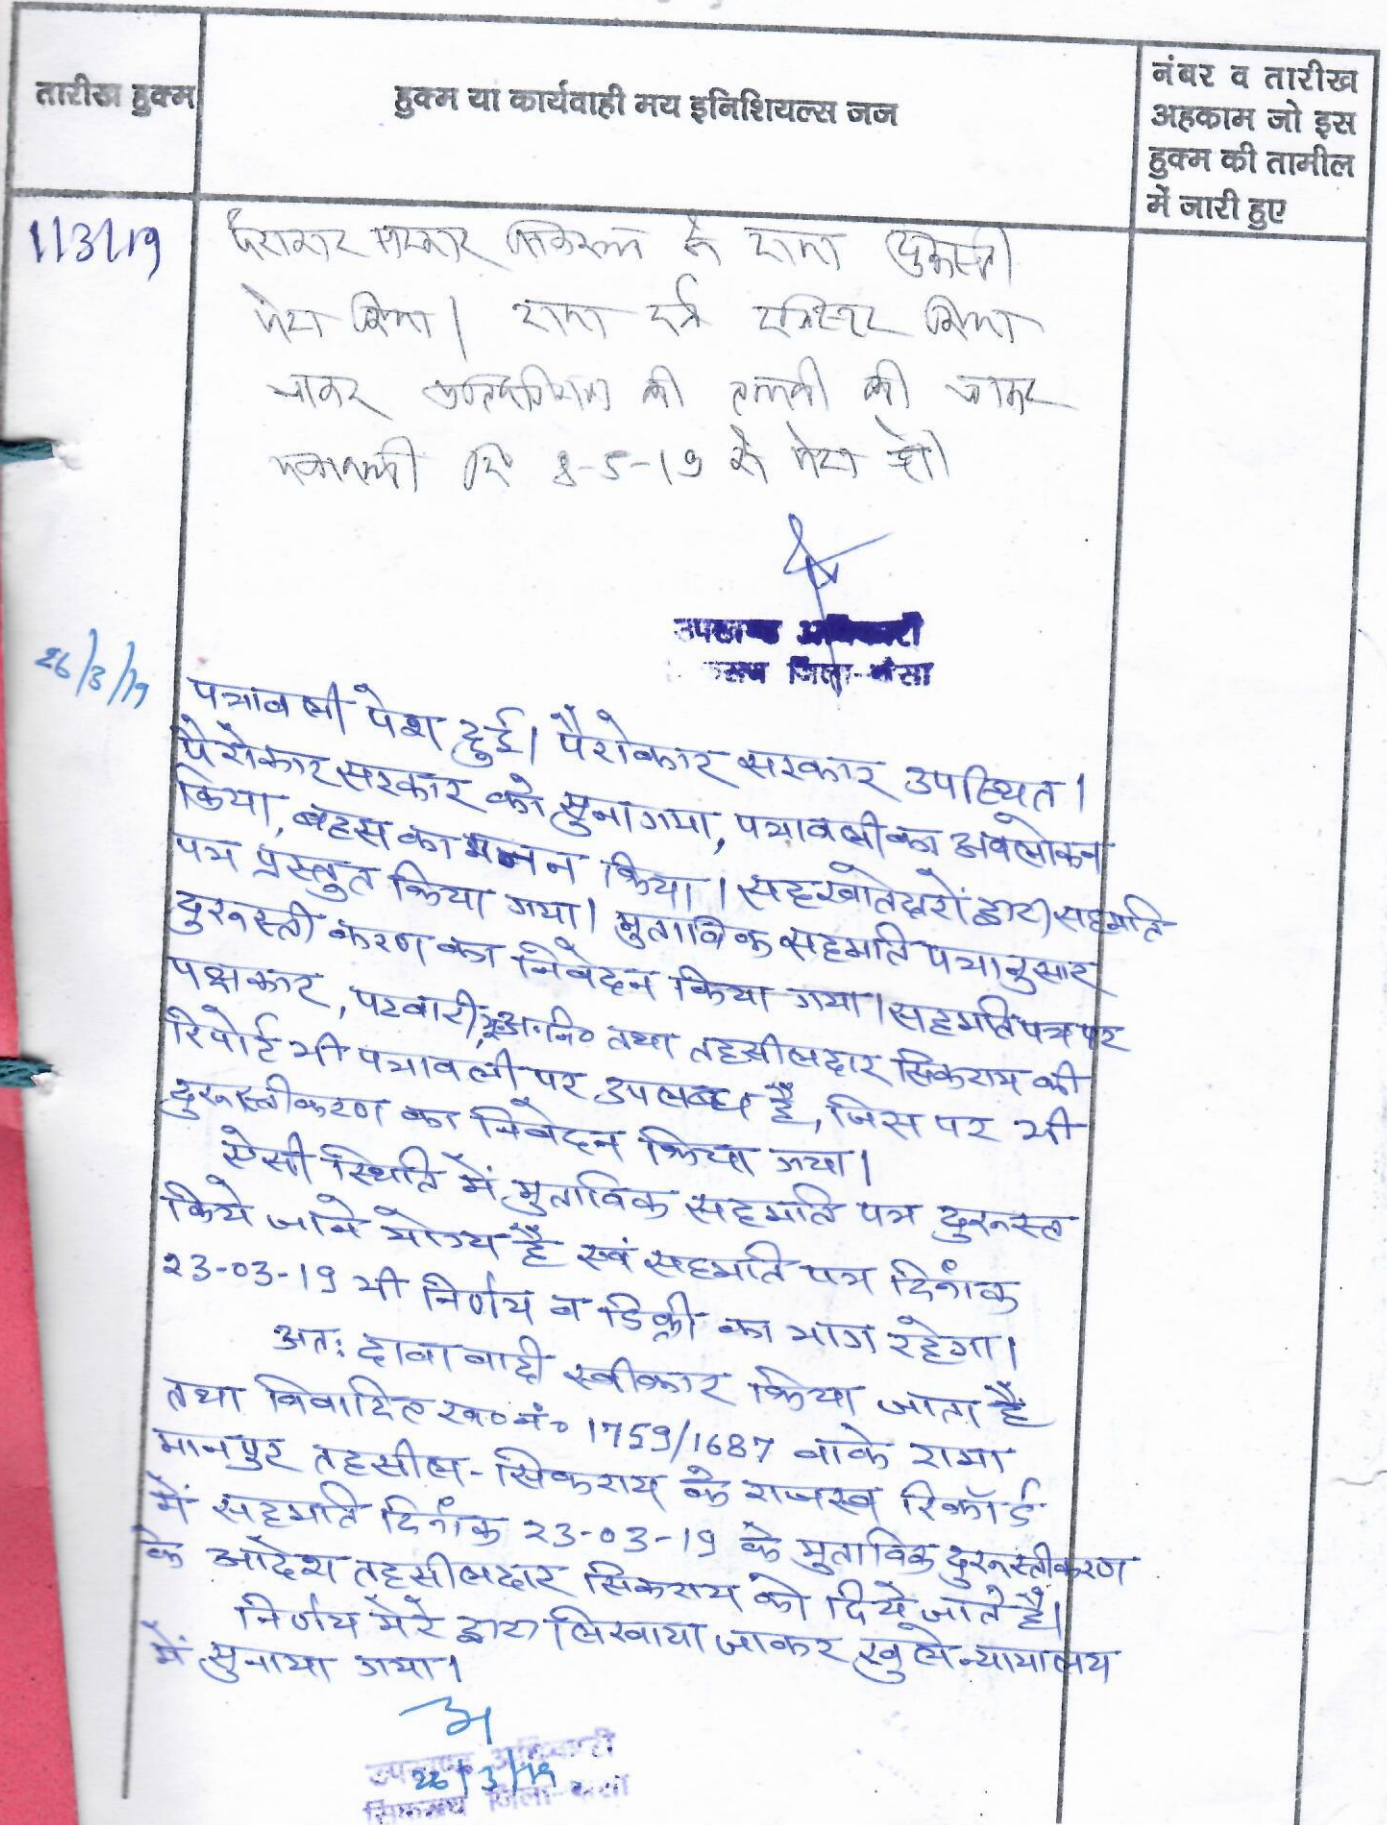 तारीख हुक्म
हुक्म या कार्यवाही मय इनिशियल्स जज
नंबर व तारीख
अहकाम जो इस
हुक्म की तामील
में जारी हुए
1/3/19
पैरोकार सरकार ने दावा दुरुस्ती
पेश किया। दावा दर्ज रजिस्टर किया
जाकर की तलबी की जाकर
पत्रावली दि 8-5-19 को पेश हो।
उपखण्ड अधिकारी
जिला-दौसा
26/3/19
पत्रावली पेश हुई। पैरोकार सरकार उपस्थित।
पैरोकार सरकार को सुना गया, पत्रावली का अवलोकन
किया, बहस का मनन किया। सहखातेदारों द्वारा सहमति
पत्र प्रस्तुत किया गया। मुताबिक सहमति पत्रानुसार
दुरुस्ती करण का निवेदन किया गया। सहमति पत्र पर
पक्षकार, पटवारी, भू.अ.नि० तथा तहसीलदार सिकराय की
रिपोर्ट भी पत्रावली पर उपलब्ध है, जिस पर भी
दुरुस्तीकरण का निवेदन किया गया।
ऐसी स्थिति में मुताबिक सहमति पत्र दुरुस्त
किये जाने योग्य है एवं सहमति पत्र दिनांक
23-03-19 भी निर्णय व डिक्री का भाग रहेगा।
अतः दावा वादी स्वीकार किया जाता है
तथा विवादित ख० नं० 1759/1687 वाके ग्राम
मानपुर तहसील-सिकराय के राजस्व रिकॉर्ड
में सहमति दिनांक 23-03-19 के मुताबिक दुरुस्तीकरण
के आदेश तहसीलदार सिकराय को दिये जाते है।
निर्णय मेरे द्वारा लिखाया जाकर खुले न्यायालय
में सुनाया गया।
उपखण्ड अधिकारी
26/3/19
सिकराय जिला-दौसा